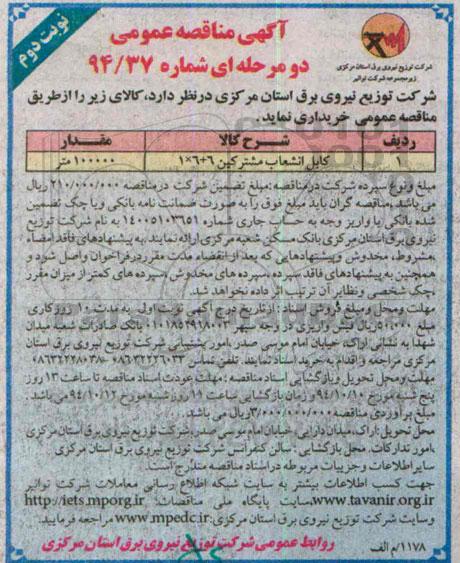 نوبت دوم
آگهی مناقصه عمومی
دو مرحله ای شماره ۹۴/۳۷
شرکت توزیع نیروی برق استان مرکزی
زیرمجموعه شرکت توانیر
شرکت توزیع نیروی برق استان مرکزی درنظر دارد، کالای زیر را ازطریق
مناقصه عمومی خریداری نماید.
ردیف شرح کالا مقدار
۱ کابل انشعاب مشترکین ۶+۶×۱ ۱۰۰۰۰۰ متر
مبلغ ونوع سپرده شرکت درمناقصه :مبلغ تضمین شرکت درمناقصه ۲۱۰/۰۰۰/۰۰۰ ریال
می باشد .مناقصه گران باید مبلغ فوق را به صورت ضمانت نامه بانکی ویا چک تضمین
شده بانکی یا واریز وجه به حساب جاری شماره ۱۴۰۰۵۱۰۳۶۵۱ به نام شرکت توزیع
نیروی برق استان مرکزی بانک مسکن شعبه مرکزی ارائه نمایند .به پیشنهادهای فاقد امضاء
،مشروط، مخدوش وپیشنهادهایی که بعد از انقضاء مدت مقرردرفراخوان واصل شود و
همچنین به پیشنهادهای فاقد سپرده ،سپرده های مخدوش ،سپرده های کمتر از میزان مقرر
،چک شخصی ونظایر آن ترتیب اثر داده نخواهد شد.
مهلت ومحل ومبلغ فروش اسناد : ازتاریخ درج آگهی نوبت اول به مدت ۱۰ روزکاری
مبلغ ۵۰۰/۰۰۰ریال فیش واریزی در وجه سپهر ۰۱۰۱۸۵۴۹۶۸۰۰۳ بانک صادرات شعبه میدان
شهدا به نشانی اراک، خیابان امام موسی صدر ،امور پشتیبانی شرکت توزیع نیروی برق استان
مرکزی مراجعه و اقدام به خرید اسناد نمایند. تلفن تماس ۰۸۶۳۲۲۲۶۰۳۳ -۰۸۶۳۲۲۴۸۰۳۸
مهلت ومحل تحویل وبازگشایی اسناد مناقصه : مهلت عودت اسناد مناقصه تا ساعت ۱۳ روز
پنج شنبه مورخ ۹۴/۱۰/۱۰ و زمان بازگشایی ساعت ۱۱ روز شنبه مورخ ۹۴/۱۰/۱۲ می باشد .
مبلغ برآوردی مناقصه ۳/۰۰۰/۰۰۰/۰۰۰ریال می باشد.
محل تحویل :اراک، میدان دارایی، خیابان امام موسی صدر، شرکت توزیع نیروی برق استان مرکزی
،امور تدارکات. محل بازگشایی : سالن کنفرانس شرکت توزیع نیروی برق استان مرکزی
سایر اطلاعات وجزییات مربوطه دراسناد مناقصه مندرج است.
جهت کسب اطلاعات بیشتر به سایت شبکه اطلاع رسانی معاملات شرکت توانیر
www.tavanir.org.ir،سایت پایگاه ملی مناقصات: http://iets.mporg.ir
و سایت شرکت توزیع نیروی برق استان مرکزی:www.mpedc.ir مراجعه فرمایید.
روابط عمومی شرکت توزیع نیروی برق استان مرکزی
۱۱۷۸/م الف